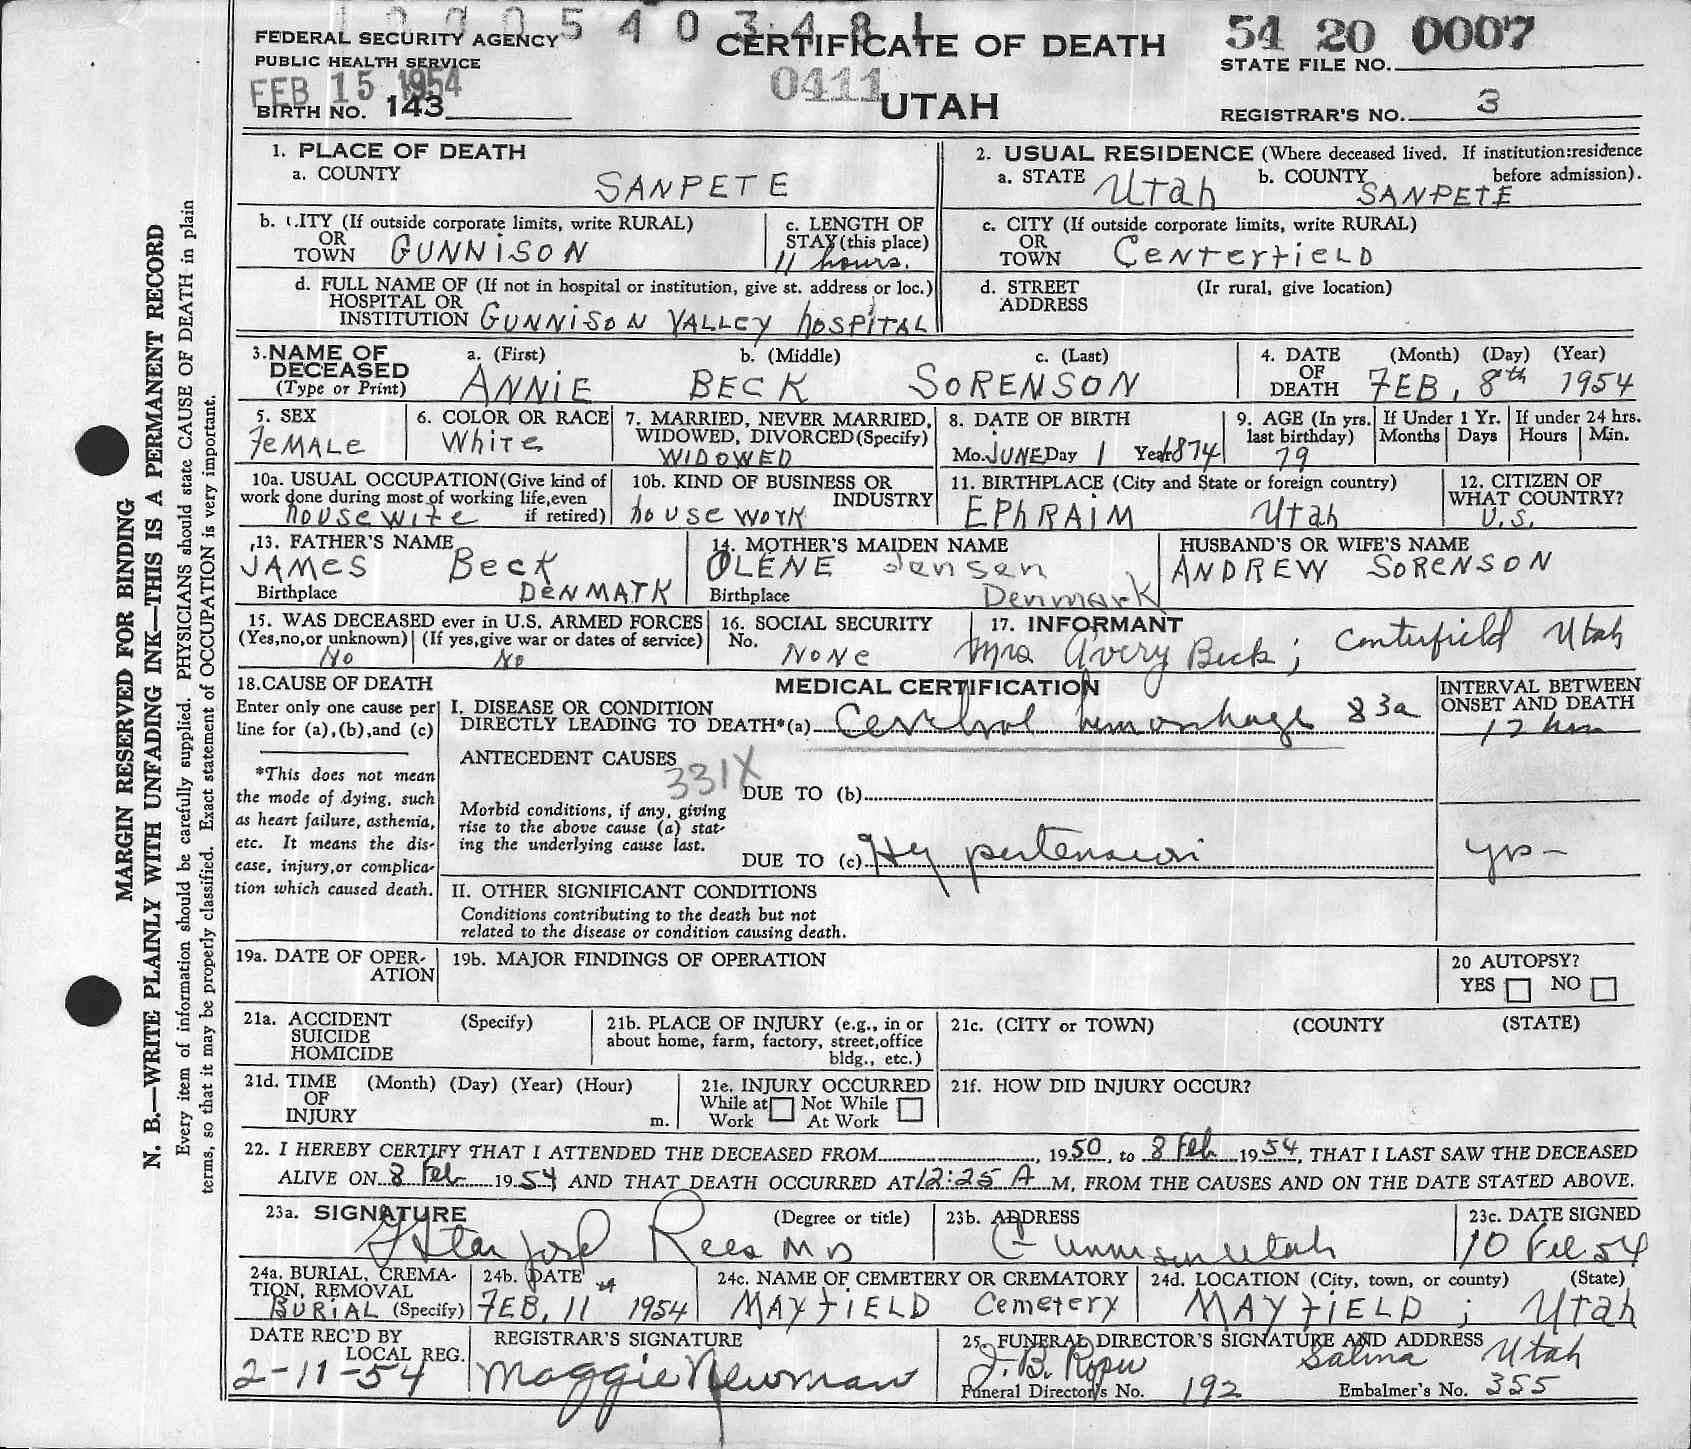 1 0 0 0 5 4 0 3 4 8 1
FEDERAL SECURITY AGENCY
PUBLIC HEALTH SERVICE
FEB 15 1954
BIRTH NO. 143
CERTIFICATE OF DEATH
0411
UTAH
54 20 0007
STATE FILE NO.
REGISTRAR'S NO. 3
1. PLACE OF DEATH
a. COUNTY
SANPETE
2. USUAL RESIDENCE (Where deceased lived. If institution:residence
before admission).
a. STATE Utah b. COUNTY SANPETE
b. CITY (If outside corporate limits, write RURAL)
OR
TOWN GUNNISON
c. LENGTH OF
STAY (this place)
11 hours.
c. CITY (If outside corporate limits, write RURAL)
OR
TOWN CENTERFIELD
d. FULL NAME OF (If not in hospital or institution, give st. address or loc.)
HOSPITAL OR
INSTITUTION GUNNISON VALLEY HOSPITAL
d. STREET (Ir rural, give location)
ADDRESS
3. NAME OF
DECEASED
(Type or Print)
a. (First) b. (Middle) c. (Last)
ANNIE BECK SORENSON
4. DATE (Month) (Day) (Year)
OF
DEATH FEB, 8th 1954
5. SEX
FEMALE
6. COLOR OR RACE
White
7. MARRIED, NEVER MARRIED,
WIDOWED, DIVORCED (Specify)
WIDOWED
8. DATE OF BIRTH
Mo. JUNE Day 1 Year 1874
9. AGE (In yrs.
last birthday)
79
If Under 1 Yr.
Months Days
If under 24 hrs.
Hours Min.
10a. USUAL OCCUPATION (Give kind of
work done during most of working life, even
if retired)
housewife
10b. KIND OF BUSINESS OR
INDUSTRY
house work
11. BIRTHPLACE (City and State or foreign country)
EPHRAIM Utah
12. CITIZEN OF
WHAT COUNTRY?
U.S.
13. FATHER'S NAME
JAMES Beck
Birthplace DENMARK
14. MOTHER'S MAIDEN NAME
OLENE Jensen
Birthplace Denmark
HUSBAND'S OR WIFE'S NAME
ANDREW SORENSON
15. WAS DECEASED ever in U.S. ARMED FORCES
(Yes,no,or unknown) (If yes,give war or dates of service)
No No
16. SOCIAL SECURITY
No.
NONE
17. INFORMANT
Mrs Avery Beck; Centerfield Utah
18. CAUSE OF DEATH
Enter only one cause per
line for (a),(b),and (c)
*This does not mean
the mode of dying, such
as heart failure, asthenia,
etc. It means the dis-
ease, injury,or complica-
tion which caused death.
MEDICAL CERTIFICATION
I. DISEASE OR CONDITION
DIRECTLY LEADING TO DEATH*(a) Cerebral hemorrhage 83a
INTERVAL BETWEEN
ONSET AND DEATH
12 hrs
ANTECEDENT CAUSES
331X
DUE TO (b)
Morbid conditions, if any, giving
rise to the above cause (a) stat-
ing the underlying cause last.
DUE TO (c) Hypertension
yrs-
II. OTHER SIGNIFICANT CONDITIONS
Conditions contributing to the death but not
related to the disease or condition causing death.
19a. DATE OF OPER-
ATION
19b. MAJOR FINDINGS OF OPERATION
20 AUTOPSY?
YES NO
21a. ACCIDENT (Specify)
SUICIDE
HOMICIDE
21b. PLACE OF INJURY (e.g., in or
about home, farm, factory, street,office
bldg., etc.)
21c. (CITY or TOWN) (COUNTY (STATE)
21d. TIME (Month) (Day) (Year) (Hour)
OF
INJURY m.
21e. INJURY OCCURRED
While at Not While
Work At Work
21f. HOW DID INJURY OCCUR?
22. I HEREBY CERTIFY THAT I ATTENDED THE DECEASED FROM , 1950, to 8 Feb 1954, THAT I LAST SAW THE DECEASED
ALIVE ON 8 Feb 1954 AND THAT DEATH OCCURRED AT 12:25 A M, FROM THE CAUSES AND ON THE DATE STATED ABOVE.
23a. SIGNATURE (Degree or title)
G Stanford Rees MD
23b. ADDRESS
Gunnison Utah
23c. DATE SIGNED
10 Feb 54
24a. BURIAL, CREMA-
TION, REMOVAL
BURIAL (Specify)
24b. DATE
FEB, 11 1954
24c. NAME OF CEMETERY OR CREMATORY
MAYFIELD Cemetery
24d. LOCATION (City, town, or county) (State)
MAYFIELD; Utah
DATE REC'D BY
LOCAL REG.
2-11-54
REGISTRAR'S SIGNATURE
Maggie Newman
25. FUNERAL DIRECTOR'S SIGNATURE AND ADDRESS
J. B. Roper Salina Utah
Funeral Director's No. 192 Embalmer's No. 355
MARGIN RESERVED FOR BINDING
N. B.—WRITE PLAINLY WITH UNFADING INK—THIS IS A PERMANENT RECORD
Every item of information should be carefully supplied. PHYSICIANS should state CAUSE OF DEATH in plain
terms, so that it may be properly classified. Exact statement of OCCUPATION is very important.